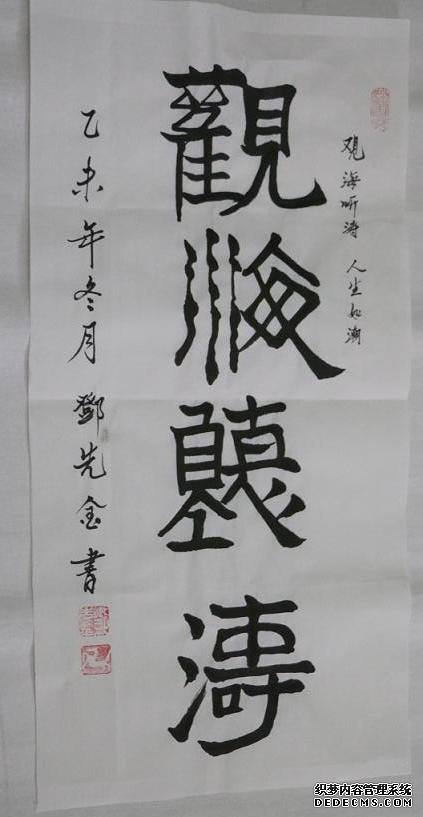 观海听涛 人生如潮
觀海聽濤
乙未年冬月鄧先金書
织梦内容管理系统
DEDECMS.COM